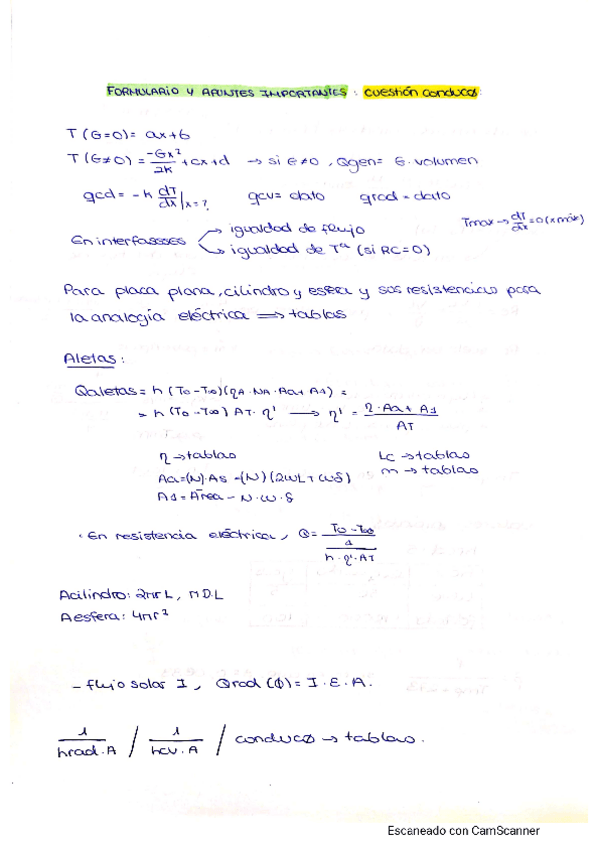 FORMULARIO Y APUNTES IMPORTANTES : CUESTIÓN CONDUCCIÓN:
T (G=0) = ax+b
T (G≠0) = -Gx²/2K + cx + d → si G≠0, Qgen = G.volumen
qcd = -k dT/dx |x=? qcv = dato qrad = dato
Tmax → dT/dx = 0 (xmáx)
En interfases
igualdad de flujo
igualdad de Tª (si RC=0)
Para placa plana, cilindro y esfera y sus resistencias para
la analogía eléctrica ⟹ tablas
Aletas:
Qaletas = h (To - T∞)(ηA · NA · Aa + A1) =
= h (To - T∞) AT · η' → η' = η · Aa + A1 / AT
η → tablas Lc → tablas
Aa = (N) · As = (N) (2WL + Wδ) m → tablas
A1 = Área - N · W · δ
· En resistencia eléctrica, Q = To - T∞ / 1 / h · η' · AT
Acilindro: 2πrL, πD.L
Aesfera: 4πr²
- flujo solar I, Qrad (Φ) = I · E · A.
1/hrad.A / 1/hcv.A / conducción → tablas.
Escaneado con CamScanner